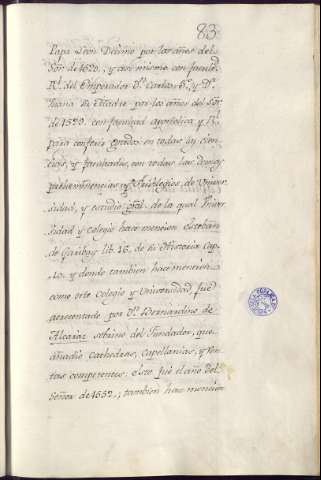 83
Papa Leon Decimo por los años del
Sor. de 1520., y asi mismo con facultd.
Rl. del Emperador Dn. Carlos 5º. y Dª.
Juana su Madre por los años del Sor.
de 1529. con facultad apostolica y Rl.
para conferir grados en todas las cien-
cias, y facultades, con todas las demas
prehemminencias y Privilegios de Univer-
sidad, y estudio gral. de la qual Univer-
sidad y Colegio hace mencion Esteban
de Garibay lib. 16. de su Historia Cap.
10. y donde tambien hace mencion
como este Colegio y Universidad fue
acrecentado por Dn. Bernardino de
Alcaraz sobrino del Fundador, que
añadio Cathedras, Capellanias, y ren-
tas competentes: esto fue el año del
Señor de 1552.; tambien hac mencion